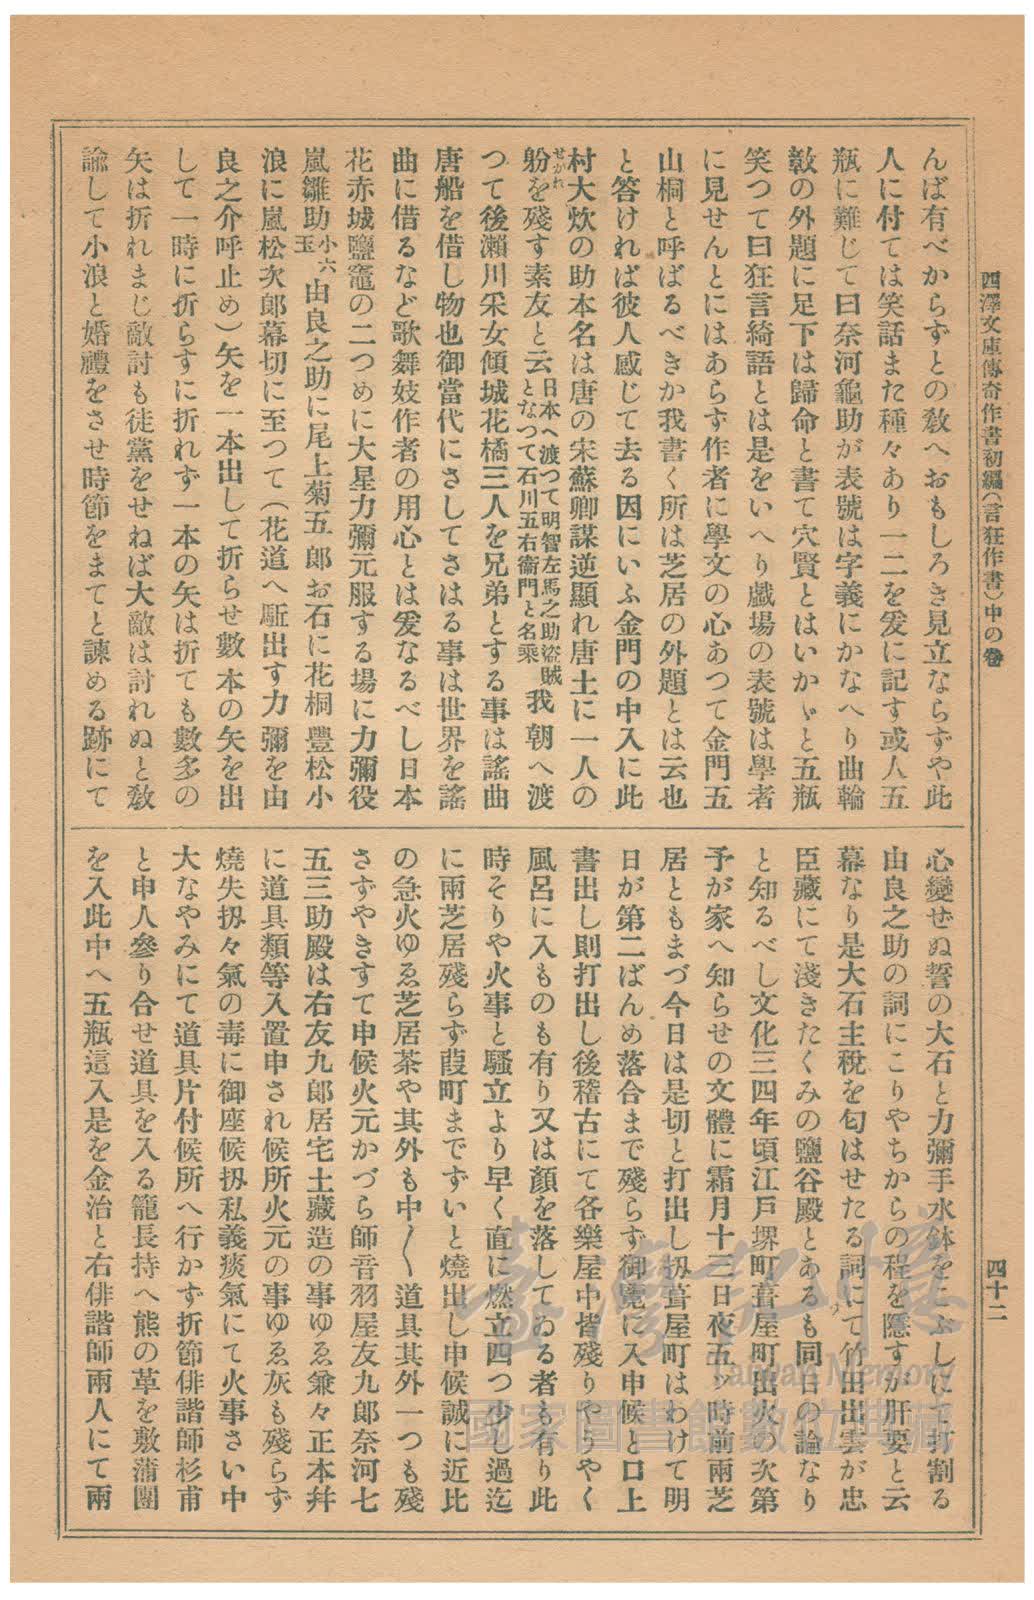 西澤文庫傳奇作書初編(言狂作書)中の卷
四十二
んば有べからずとの敎へおもしろき見立ならずや此
人に付ては笑話また種々あり一二を爰に記す或人五
瓶に難じて曰奈河龜助が表號は字義にかなへり曲輪
㪽の外題に足下は歸命と書て穴賢とはいかゞと五瓶
笑つて曰狂言綺語とは是をいへり戲場の表號は學者
に見せんとにはあらず作者に學文の心あつて金門五
山桐と呼ばるべきか我書く所は芝居の外題とは云也
と答ければ彼人感じて去る因にいふ金門の中入に此
村大炊の助本名は唐の宋蘇卿謀逆顯れ唐土に一人の
躮を殘す素友と云日本へ渡つて明智左馬之助盜賊となつて石川五右衞門と名乘我朝へ渡
せがれ
つて後瀨川采女傾城花橘三人を兄弟とする事は謠曲
唐船を借し物也御當代にさしてさはる事は世界を謠
曲に借るなど歌舞妓作者の用心とは爰なるべし日本
花赤城鹽竈の二つめに大星力彌元服する場に力彌役
嵐雛助小六玉由良之助に尾上菊五郎お石に花桐豐松小
浪に嵐松次郎幕切に至つて(花道へ駈出す力彌を由
良之介呼止め)矢を一本出して折らせ數本の矢を出
して一時に折らすに折れず一本の矢は折ても數多の
矢は折れまじ敵討も徒黨をせねば大敵は討れぬと敎
諭して小浪と婚禮をさせ時節をまてと諫める跡にて
心變せぬ誓の大石と力彌手水鉢をこぶしにて打割る
由良之助の詞にこりやちからの程を隱すが肝要と云
幕なり是大石主稅を匂はせたる詞にて竹田出雲が忠
臣藏にて淺きたくみの鹽谷殿とあるも同日の論なり
と知るべし文化三四年頃江戸堺町葺屋町出火の次第
予が家へ知らせの文體に霜月十三日夜五ッ時前兩芝
居ともまづ今日は是切と打出し扨葺屋町はわけて明
日が第二ばんめ落合まで殘らず御覽に入申候と口上
書出し則打出し後稽古にて各樂屋中皆殘りやうやく
風呂に入ものも有り又は顏を落してゐる者も有り此
時そりや火事と騷立より早く直に燃立四つ少し過迄
に兩芝居殘らず葭町までずいと燒出し申候誠に近比
の急火ゆゑ芝居茶や其外も中〳〵道具其外一つも殘
さずやきすて申候火元かづら師音羽屋友九郎奈河七
五三助殿は右友九郎居宅土藏造の事ゆゑ兼々正本幷
に道具類等入置申され候所火元の事ゆゑ灰も殘らず
燒失扨々氣の毒に御座候扨私義痰氣にて火事さい中
大なやみにて道具片付候所へ行かず折節俳諧師杉甫
と申人參り合せ道具を入る籠長持へ熊の草を敷蒲團
を入此中へ五瓶這入是を金治と右俳諧師兩人にて兩
臺灣記憶
Taiwan Memory
國家圖書館數位典藏